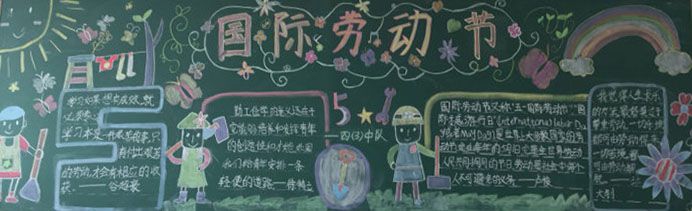 国际劳动节
学习如果想有成效，就
必须专
学习本身一件艰苦的事，只
有付出艰苦
的劳动，才会有相应的收
获。——谷超豪
勤工俭学的意义还在于
它鼓励培养和发挥青年
的创造性和才能，也就
我们给青年安排一条
轻便的道路——徐特立
5 1
—四(3)中队
国际劳动节又称"五一国际劳动节""国
际示威游行日"(International Labor Da
y或者May Day)是世界上大多数国家的劳
动节。定在每年的五月一日。它是全世界劳动
人民共同拥有的节日。劳动是社会中每个
人不可避免的义务——卢梭
我觉得人生求乐
的方法，最好莫过于
尊重劳动。一切乐境，
都可由劳动得来，
一切苦境，都
可由劳动解
脱。——李
大钊